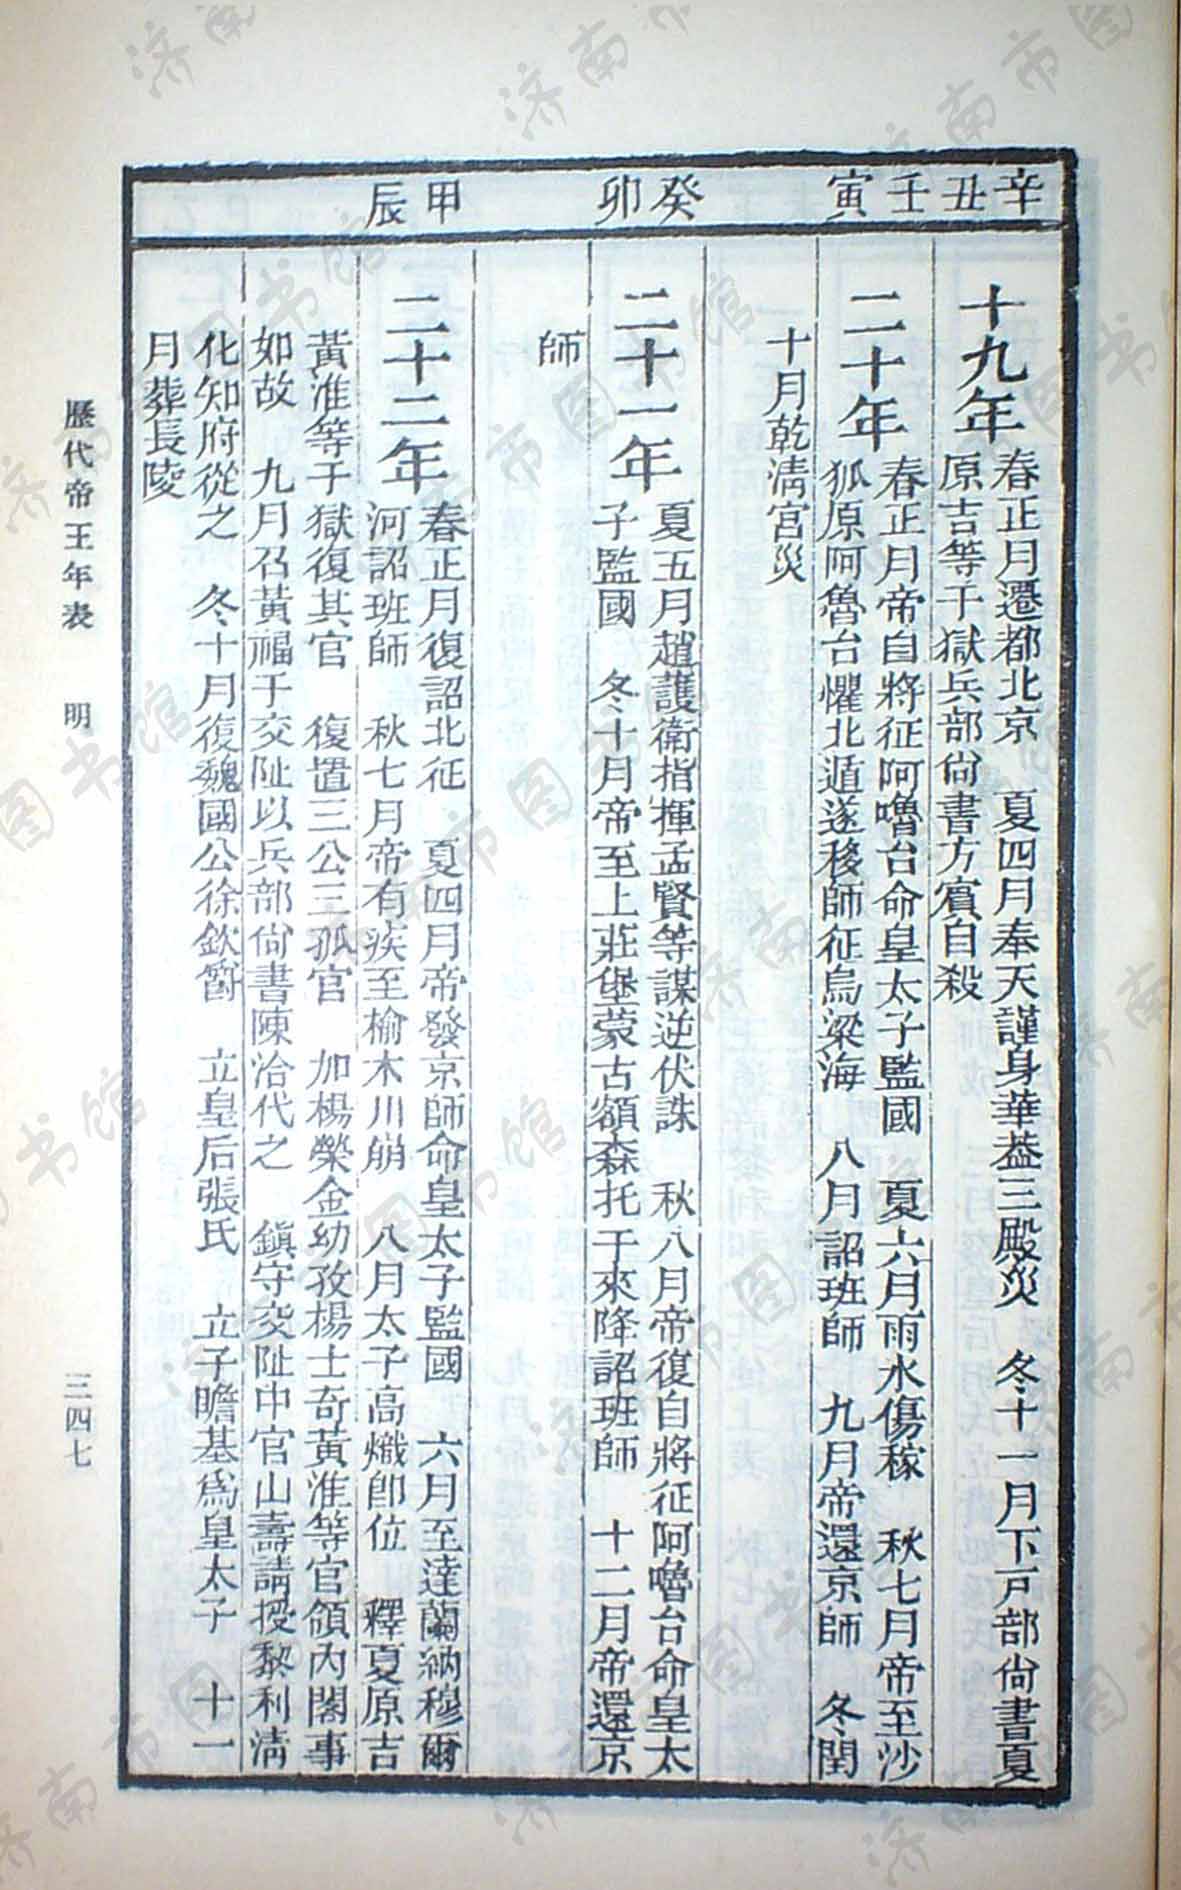 辛丑
壬寅
癸卯
甲辰
十九年
春正月遷都北京　夏四月奉天謹身華葢三殿災　冬十一月下戸部尙書夏
原吉等于獄兵部尙書方賓自殺
二十年
春正月帝自將征阿嚕台命皇太子監國　夏六月雨水傷稼　秋七月帝至沙
狐原阿魯台懼北遁遂移師征烏梁海　八月詔班師　九月帝還京師　冬閏
十月乾淸宮災
二十一年
夏五月趙護衛指揮孟賢等謀逆伏誅　秋八月帝復自將征阿嚕台命皇太
子監國　冬十月帝至上莊堡蒙古額森托干來降詔班師　十二月帝還京
師
二十二年
春正月復詔北征　夏四月帝發京師命皇太子監國　六月至達蘭納穆爾
河詔班師　秋七月帝有疾至榆木川崩　八月太子高熾卽位　釋夏原吉
黃淮等于獄復其官　復置三公三孤官　加楊榮金幼孜楊士奇黃淮等官領內閣事
如故　九月召黃福于交阯以兵部尙書陳洽代之　鎭守交阯中官山壽請授黎利淸
化知府從之　冬十月復魏國公徐欽爵　立皇后張氏　立子瞻基爲皇太子　十一
月葬長陵
歷代帝王年表　明
三四七
济南市图书馆